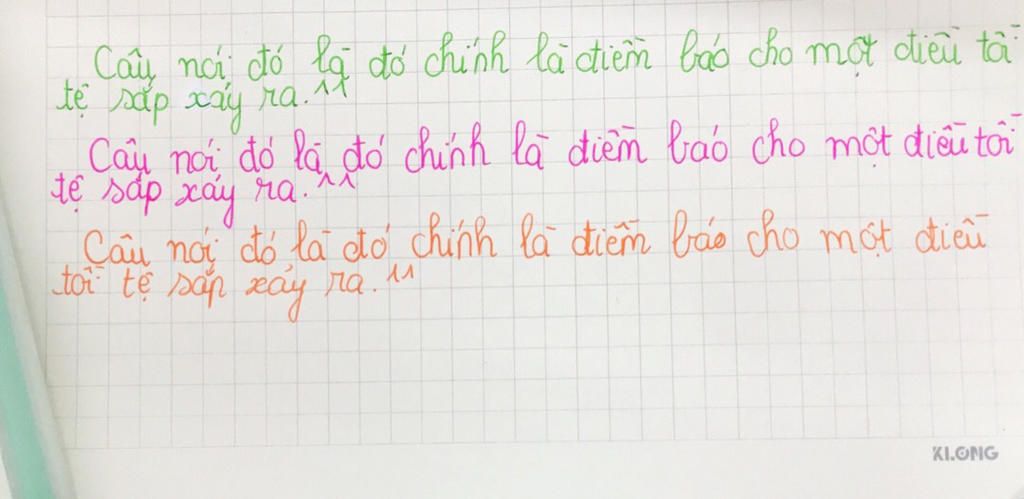 Câu nói đó là đó chính là điềm báo cho một điều tồi
tệ sắp xảy ra."
Câu nói đó là đó chính là điềm báo cho một điều tồi
tệ sắp xảy ra."
Câu nói đó là đó chính là điềm báo cho một điều
tồi tệ sắp xảy ra."
KLONG